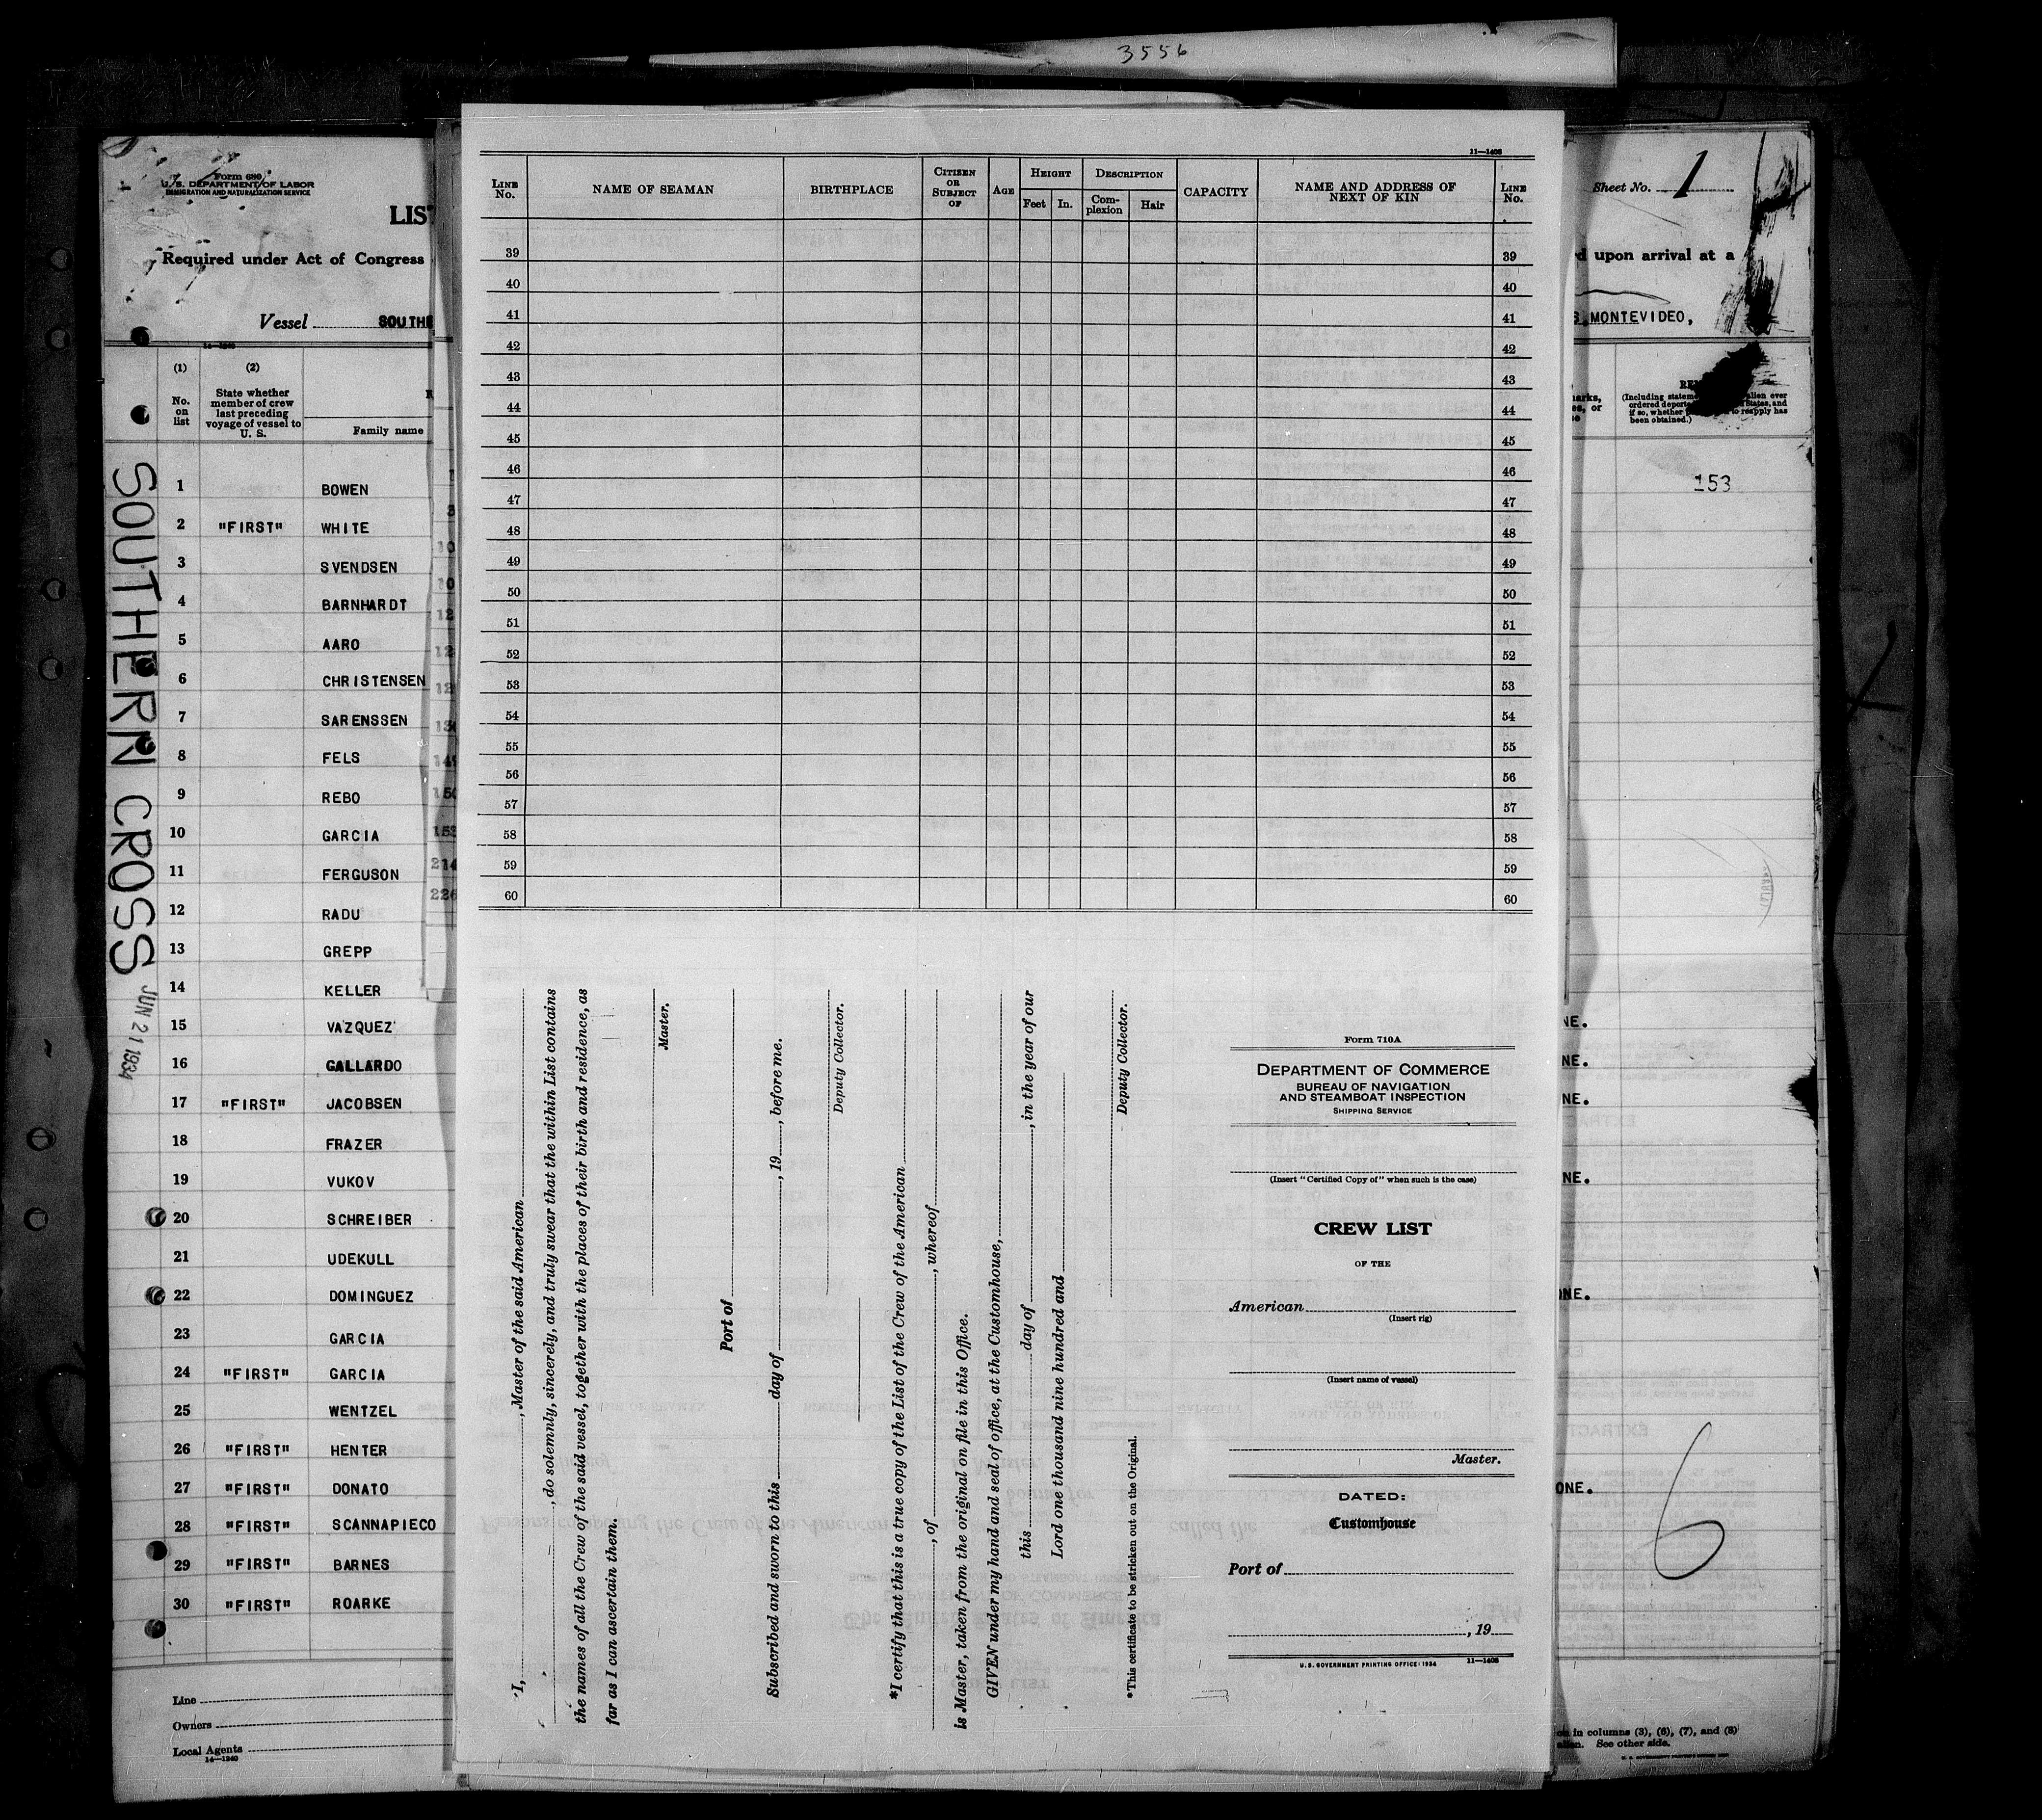 3556
Form 680
U. S. DEPARTMENT OF LABOR
IMMIGRATION AND NATURALIZATION SERVICE
LIST
Required under Act of Congress
Vessel SOUTHE
14—1240
(1) (2)
No. on list
State whether member of crew last preceding voyage of vessel to U. S.
Family name
SOUTHERN CROSS
JUN 21 1934
1 BOWEN
2 "FIRST" WHITE
3 SVENDSEN
4 BARNHARDT
5 AARO
6 CHRISTENSEN
7 SARENSSEN
8 FELS
9 REBO
10 GARCIA
11 FERGUSON
12 RADU
13 GREPP
14 KELLER
15 VAZQUEZ
16 GALLARDO
17 "FIRST" JACOBSEN
18 FRAZER
19 VUKOV
20 SCHREIBER
21 UDEKULL
22 DOMINGUEZ
23 GARCIA
24 "FIRST" GARCIA
25 WENTZEL
26 "FIRST" HENTER
27 "FIRST" DONATO
28 "FIRST" SCANNAPIECO
29 "FIRST" BARNES
30 "FIRST" ROARKE
Line
Owners
Local Agents
14—1240
10
10
12
12
12
149
150
153
214
226
11—1408
LINE No. NAME OF SEAMAN BIRTHPLACE CITIZEN OR SUBJECT OF AGE HEIGHT Feet In. DESCRIPTION Complexion Hair CAPACITY NAME AND ADDRESS OF NEXT OF KIN LINE No.
39 39
40 40
41 41
42 42
43 43
44 44
45 45
46 46
47 47
48 48
49 49
50 50
51 51
52 52
53 53
54 54
55 55
56 56
57 57
58 58
59 59
60 60
I, , Master of the said American
, do solemnly, sincerely, and truly swear that the within List contains
the names of all the Crew of the said vessel, together with the places of their birth and residence, as
far as I can ascertain them.
Master.
Port of
Subscribed and sworn to this day of , 19 , before me.
Deputy Collector.
*I certify that this is a true copy of the List of the Crew of the American
, of , whereof
is Master, taken from the original on file in this Office.
GIVEN under my hand and seal of office, at the Customhouse,
this day of , in the year of our
Lord one thousand nine hundred and
Deputy Collector.
*This certificate to be stricken out on the Original.
Form 710A
DEPARTMENT OF COMMERCE
BUREAU OF NAVIGATION
AND STEAMBOAT INSPECTION
SHIPPING SERVICE
(Insert "Certified Copy of" when such is the case)
CREW LIST
OF THE
American
(Insert rig)
(Insert name of vessel)
Master.
DATED:
Customhouse
Port of
, 19
U. S. GOVERNMENT PRINTING OFFICE: 1934 11—1408
Sheet No. 1
d upon arrival at a
S, MONTEVIDEO,
(Including statement
alien ever
ordered deported
States, and
if so, whether
to reapply has
been obtained.)
153
NE.
NE.
NE.
NE.
ONE.
ONE.
6
in columns (3), (6), (7), and (8)
alien. See other side.